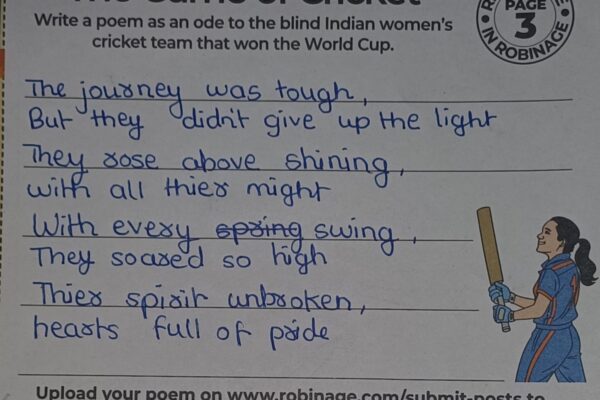 The Game of Cricket
Write a poem as an ode to the blind Indian women's
cricket team that won the World Cup.
PAGE
3
IN ROBINAGE
The journey was tough,
But they didn't give up the light
They rose above shining,
with all thier might
With every spring swing,
They soared so high
Thier spirit unbroken,
hearts full of pride
Upload your poem on www.robinage.com/submit-posts to